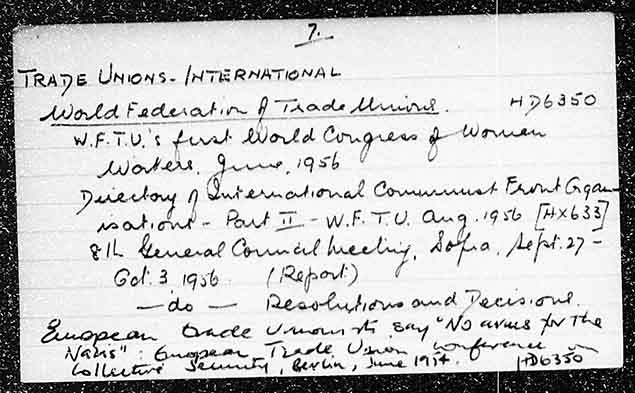 7.
TRADE UNIONS - INTERNATIONAL
World Federation of Trade Unions. HD6350
W.F.T.U.'s first World Congress of Women
Workers, June, 1956
Directory of International Communist Front Organ-
isations - Part II - W.F.T.U. Aug. 1956 [HX633]
8th General Council Meeting, Sofia, Sept. 27 -
Oct. 3 1956. (Report)
— do — Resolutions and Decisions.
European trade Unionists say "No arms for the
Nazis" : European Trade Union Conference on
Collective Security, Berlin, June 1954. HD6350